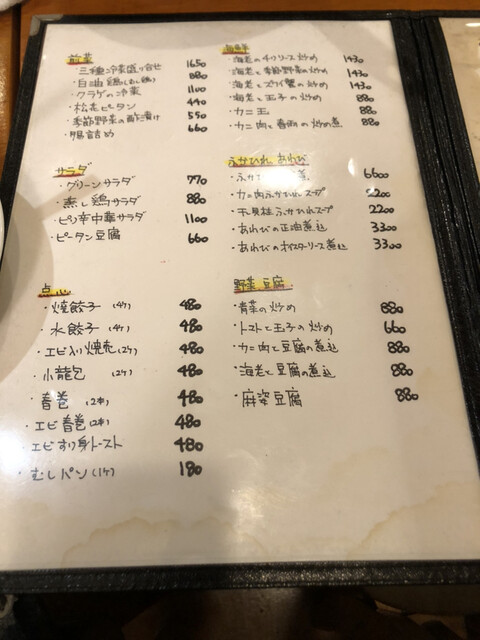 前菜
・三種冷菜盛り合せ 1650
・白油鶏(むし鶏) 880
・クラゲの冷菜 1100
・松花ピータン 440
・季節野菜の酢漬け 550
・腸詰め 660
サラダ
・グリーンサラダ 770
・蒸し鶏サラダ 880
・ピリ辛中華サラダ 1100
・ピータン豆腐 660
点心
・焼餃子 (4ケ) 480
・水餃子 (4ケ) 480
・エビ入り焼売(2ケ) 480
・小籠包 (2ケ) 480
・春巻 (2本) 480
・エビ春巻(2本) 480
・エビすり身トースト 480
・むしパン(1ケ) 180
海鮮
・海老のチリソース炒め 1430
・海老と季節野菜の炒め 1430
・海老とズワイ蟹の炒め 1430
・海老と玉子の炒め 880
・カニ玉 880
・カニ肉と春雨の炒め煮 880
ふかひれ あわび
6600
・カニ肉ふかひれスープ 2200
・干貝柱ふかひれスープ 2200
・あわびの正油煮込 3300
・あわびのオイスターソース煮込 3300
野菜 豆腐
・青菜の炒め 880
・トマトと玉子の炒め 660
・カニ肉と豆腐の煮込 880
・海老と豆腐の煮込 880
・麻婆豆腐 880